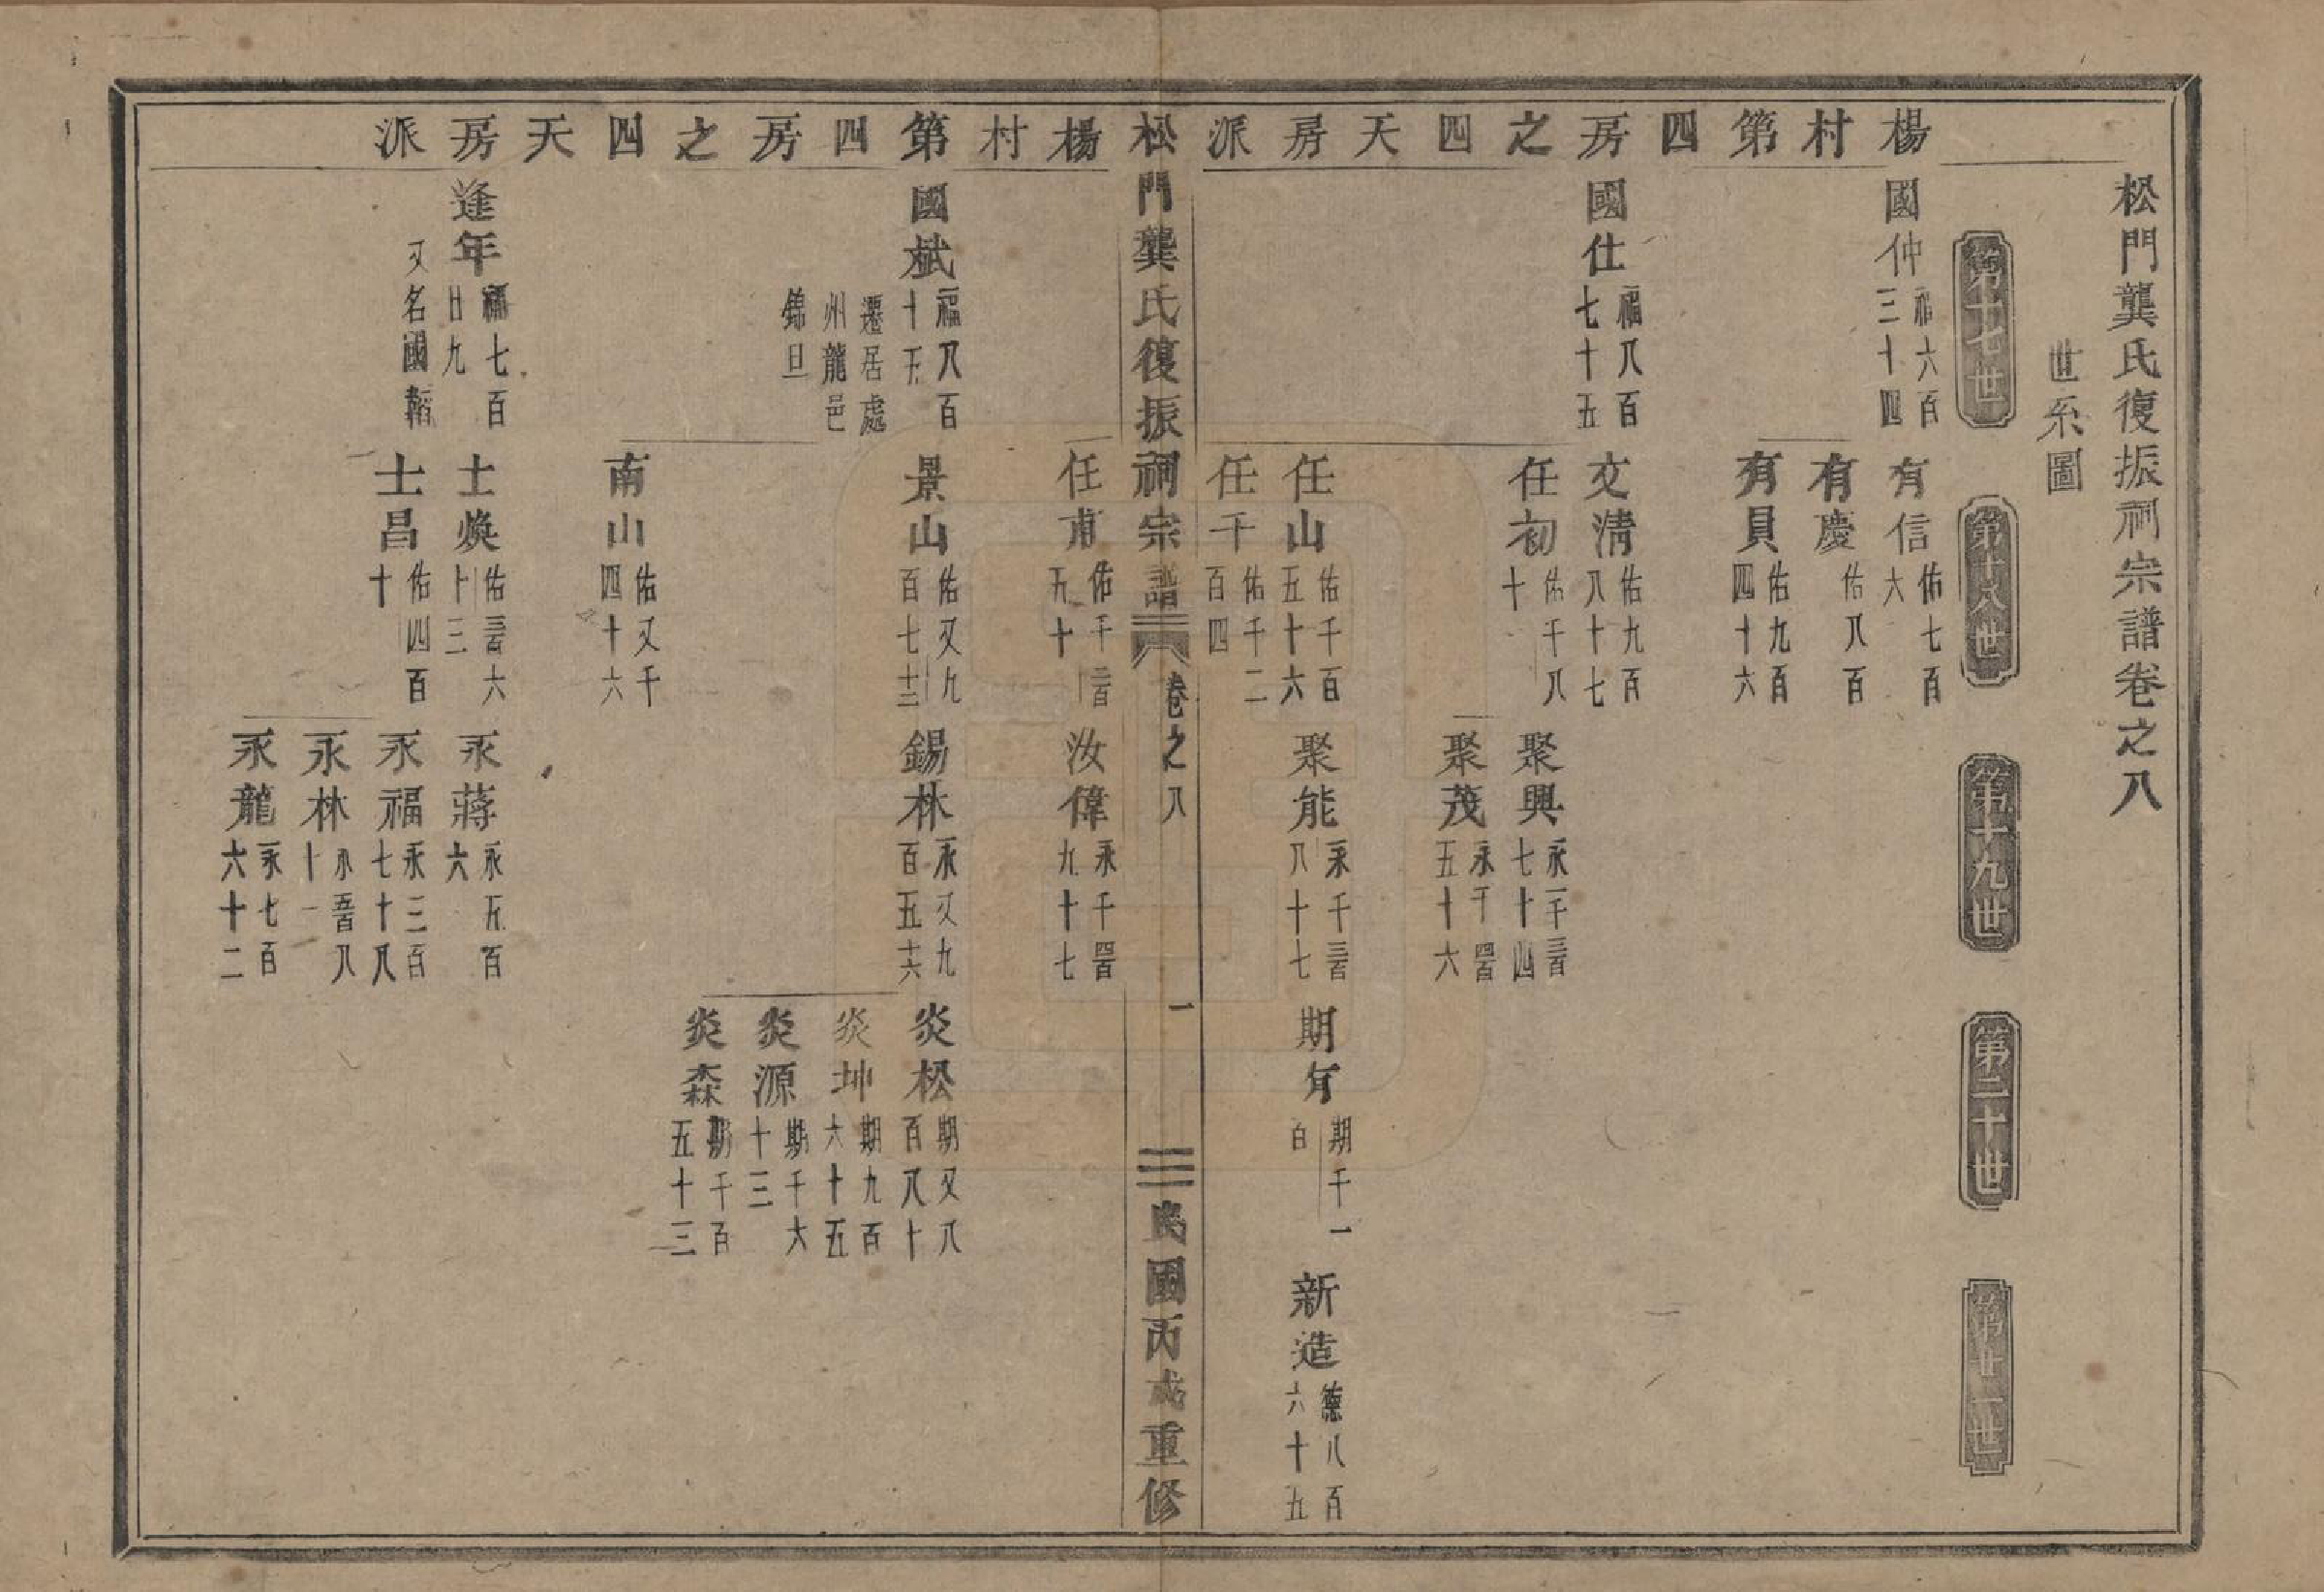 松門龔氏復振祠宗譜卷之八
世系圖
第十七世
第十八世
第十九世
第二十世
第廿一世
楊村第四房之四天房派
國仲 福六百三十四
有信 佑七百六
有慶 佑八百
有員 佑九百四十六
國仕 福八百七十五
文清 佑九百八十七
任初 佑千八十
聚興 永一千三百七十四
聚茂 永千四百五十六
任山 佑千百五十六
聚能 永千三百八十七
期年 期千一百
新造 德八百六十五
任千 佑千二百四
松門龔氏復振祠宗譜 卷之八 一 民國丙戌重修
楊村第四房之四天房派
任甫 佑千二百五十
汝偉 永千四百九十七
國斌 福八百十五
遷居處州龍邑錦旦
景山 佑又九百七十三
錫林 永又九百五十六
炎松 期又八百八十
炎坤 期九百六十五
炎源 期千六十三
炎森 期千百五十三
南山 佑又千四十六
逢年 福七百廿九
又名國韜
士煥 佑三百六十三
永蔣 永五百六
士昌 佑四百十
永福 永三百七十八
永林 永五百八十一
永龍 永七百六十二